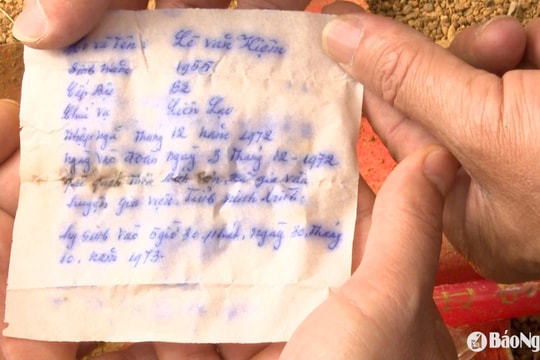 Họ và Tên: Lê Văn Hiệm
Sinh Năm 1955
Cấp Bậc B2
Chức vụ Liên Lạc
Nhập ngũ tháng 12 năm 1972
ngày vào Đoàn ngày 3 tháng 12-1972
gia
huyện gia viễn. Tỉnh ninh bình.
Hy sinh vào 5giờ 30 phút, ngày 30, tháng
10. năm 1973.
BáoNg